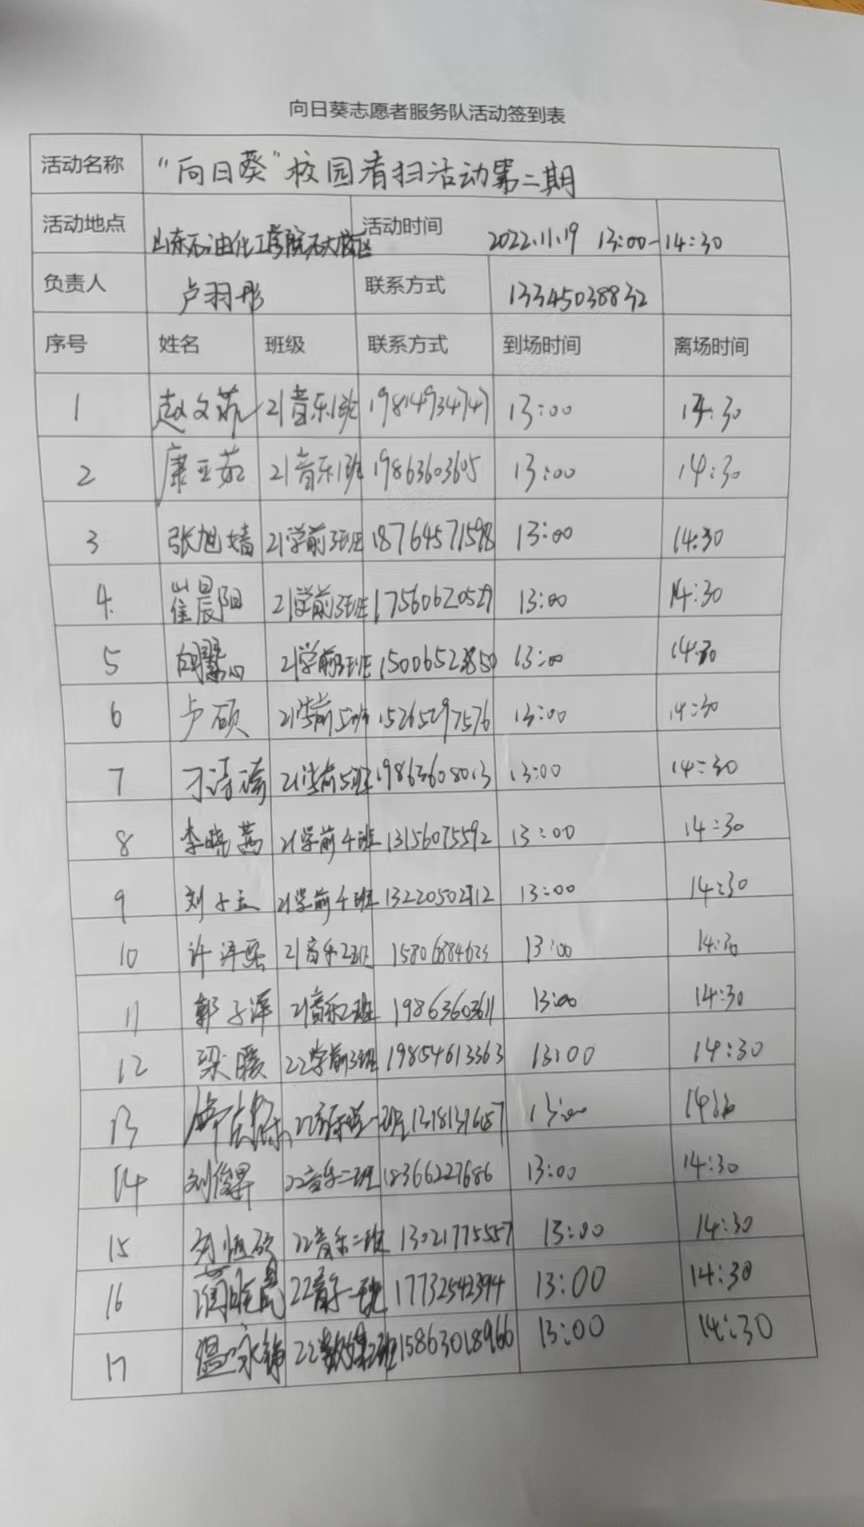 向日葵志愿者服务队活动签到表
活动名称 “向日葵”校园清扫活动第二期
活动地点 山东石油化工学院石大校区 活动时间 2022.11.19 13:00-14:30
负责人 卢羽彤 联系方式 13345038832
序号 姓名 班级 联系方式 到场时间 离场时间
1 赵文菲 21音乐1班 19814934747 13:00 14:30
2 康亚茹 21音乐1班 19863603605 13:00 14:30
3 张旭婧 21学前3班 18764571598 13:00 14:30
4 崔晨阳 21学前3班 17560620529 13:00 14:30
5 21学前3班 15006523850 13:00 14:30
6 卢硕 21学前5班 15265297576 13:00 14:30
7 刁诗琦 21学前5班 19863608013 13:00 14:30
8 李晓茜 21学前4班 13156075592 13:00 14:30
9 刘子玉 21学前4班 13220502912 13:00 14:30
10 许泽 21音乐2班 15806884623 13:00 14:30
11 郭子泽 21音乐2班 19863603611 13:00 14:30
12 梁暖 22学前3班 19854613363 13:00 14:30
13 22音乐一班 13:00 14:30
14 刘俊昇 22音乐二班 18366227686 13:00 14:30
15 刘恒硕 22音乐二班 13021775557 13:00 14:30
16 22音乐一班 17732542394 13:00 14:30
17 温咏 22 15863018966 13:00 14:30